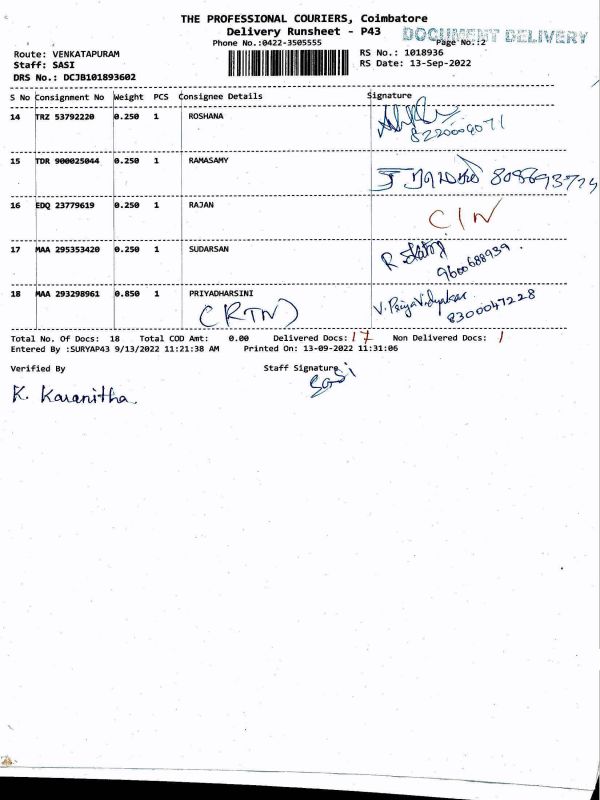 THE PROFESSIONAL COURIERS, Coimbatore
Delivery Runsheet - P43
DOCUMENT DELIVERY
Phone No.:0422-3505555
Page No.:2
Route: VENKATAPURAM
RS No.: 1018936
Staff: SASI
RS Date: 13-Sep-2022
DRS No.: DCJB101893602
S No Consignment No Weight PCS Consignee Details Signature
14 TRZ 53792220 0.250 1 ROSHANA
8220009071
15 TDR 900025044 0.250 1 RAMASAMY
16 EDQ 23779619 0.250 1 RAJAN C/N
17 MAA 295353420 0.250 1 SUDARSAN
9600688939.
18 MAA 293298961 0.850 1 PRIYADHARSINI V. PriyaVidyakar
(RTN) 8300047228
Total No. Of Docs: 18 Total COD Amt: 0.00 Delivered Docs: 17 Non Delivered Docs: 1
Entered By :SURYAP43 9/13/2022 11:21:38 AM Printed On: 13-09-2022 11:31:06
Verified By Staff Signature
Sasi
K. Karanitha.